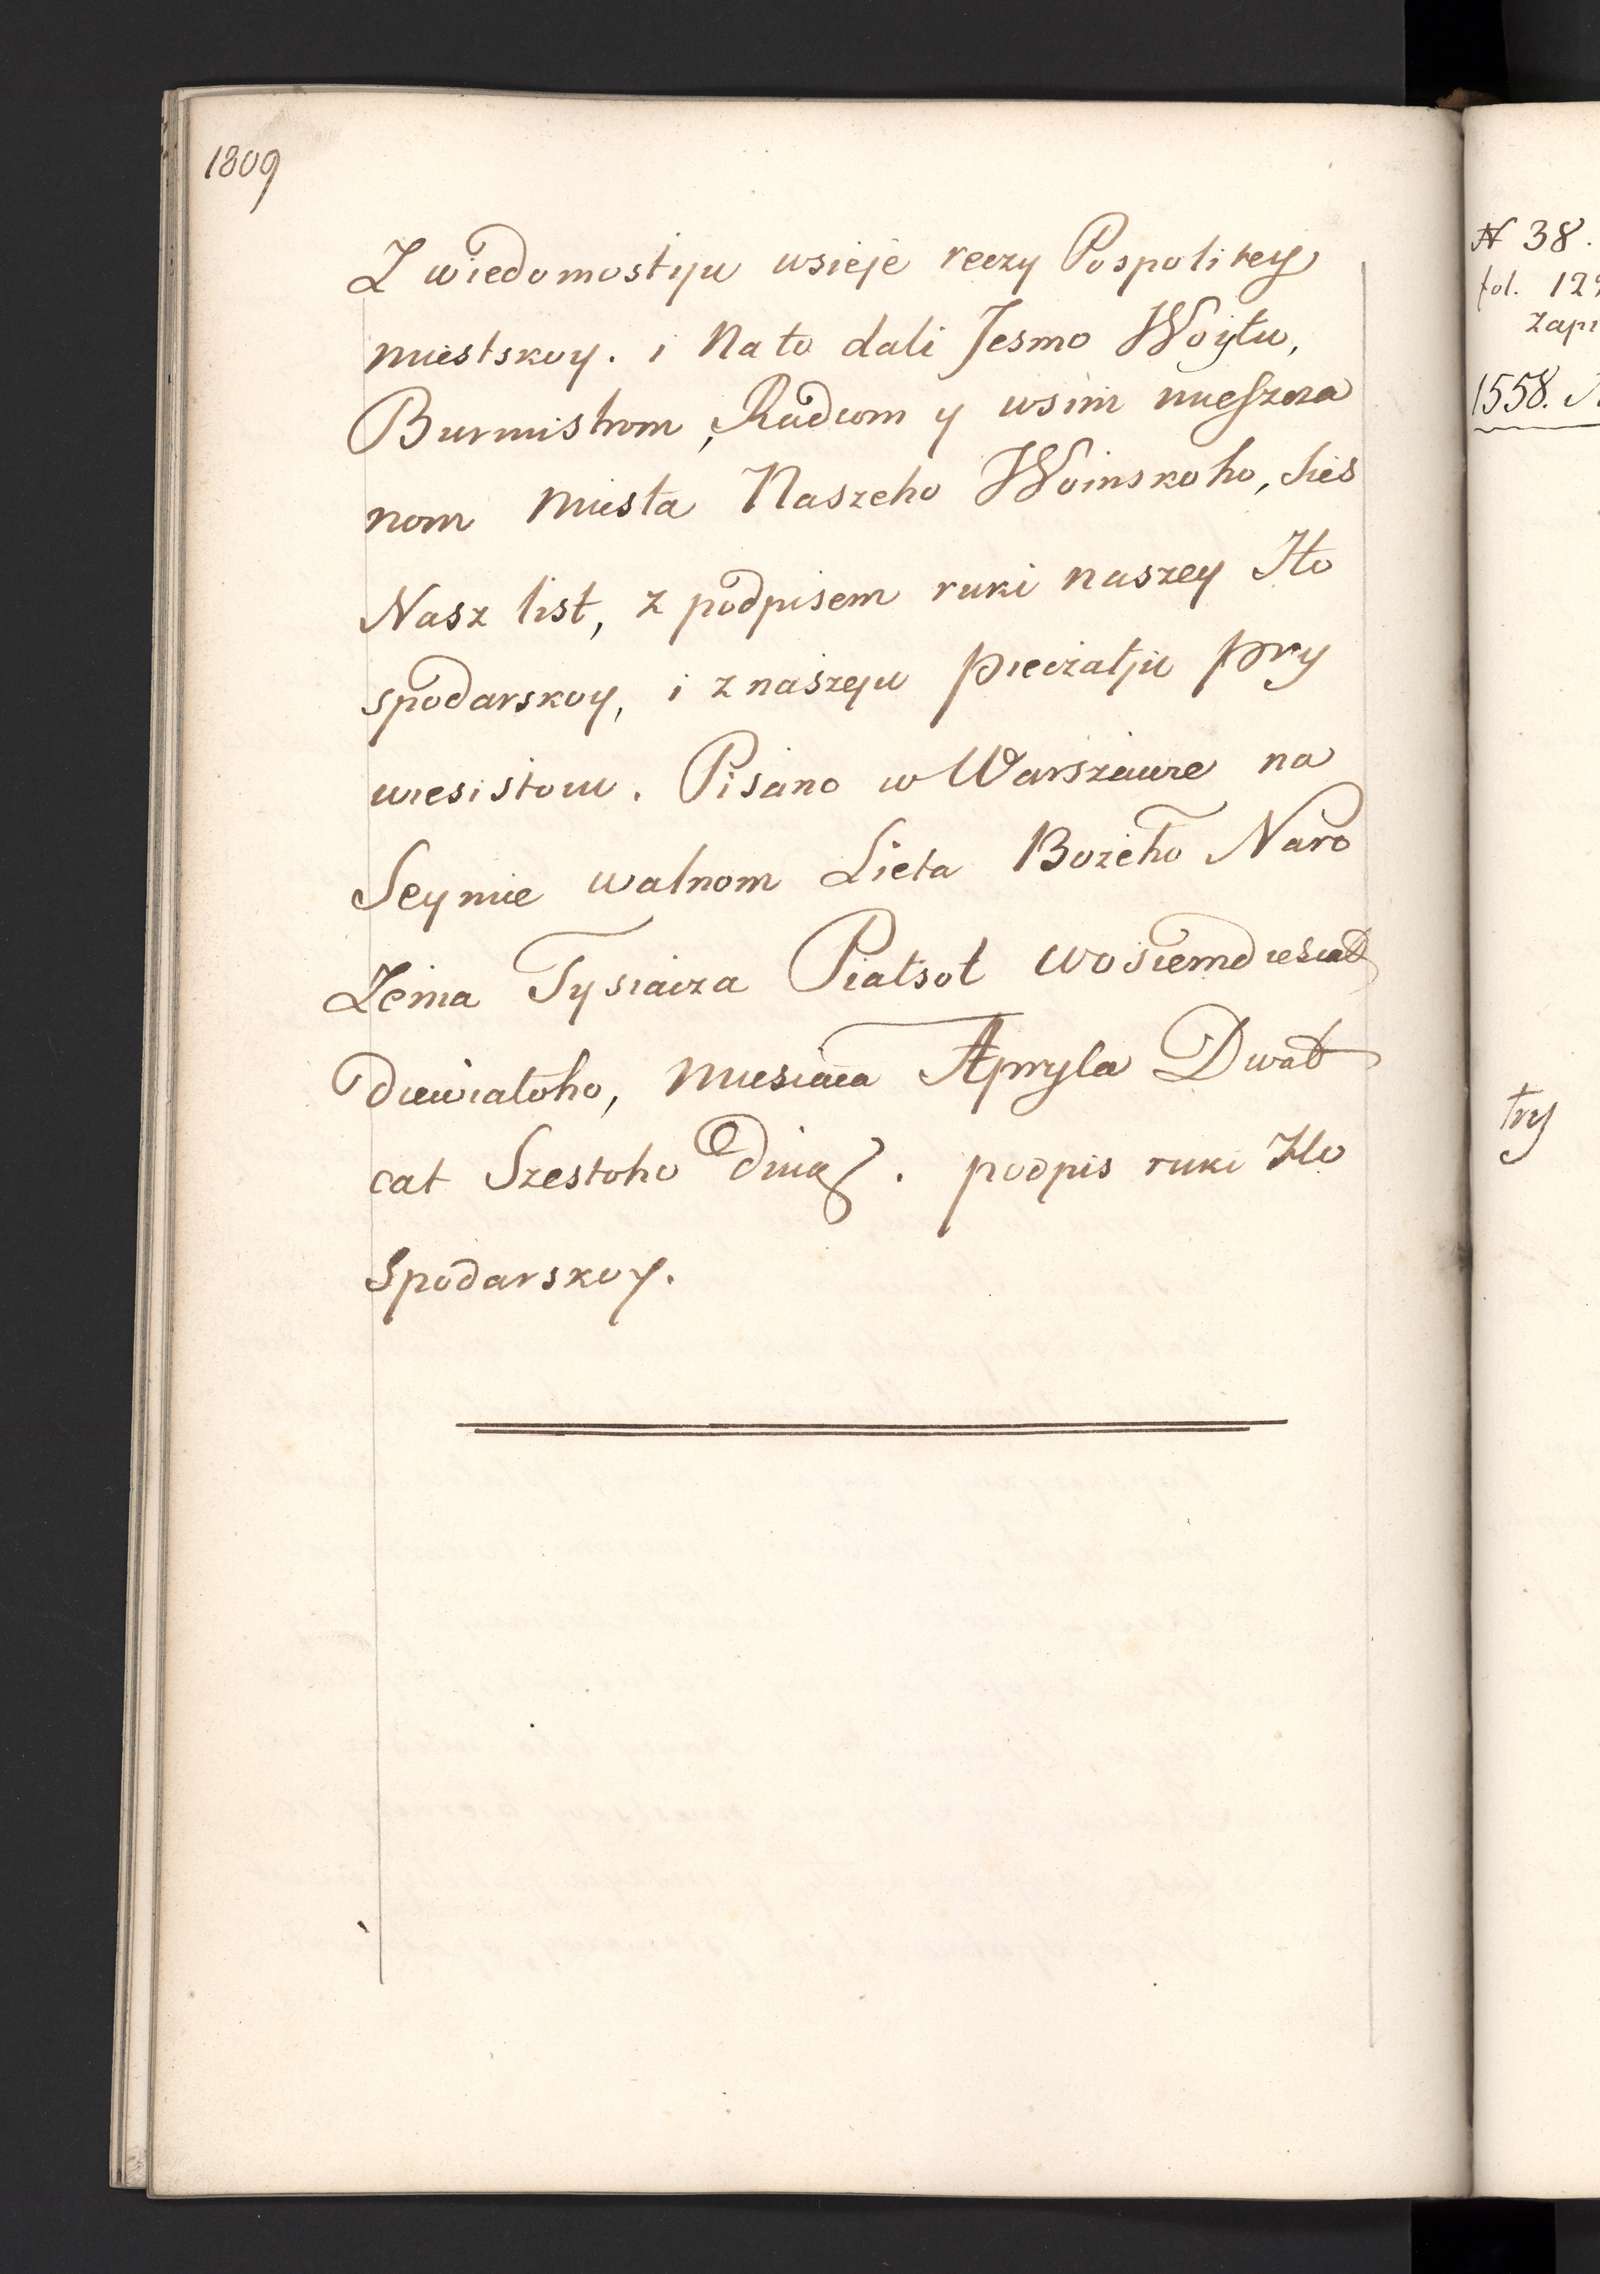 1809
Z wiedomostju wsieje reczy Pospolitey
miestskoy. i Na to dali Jesmo Woytu,
Burmistrom, Radcom y wsim mieszcza
nom miesta Naszeho Woinskoho, sies
Nasz list, z podpisem ruki naszey Ho
spodarskoy, i z naszeju pieczatju pry
wiesistoiu. Pisano w Warszawie na
Seymie walnom Lieta Bożeho Naro
Żenia Tysiacza Piatsot wosiemdiesiat
diewiatoho, miesiaca Apryla Dwat
cat Szestoho dnia. podpis ruki Ho
spodarskoy.
N 38.
fol. 12
Zapi
1558.
try